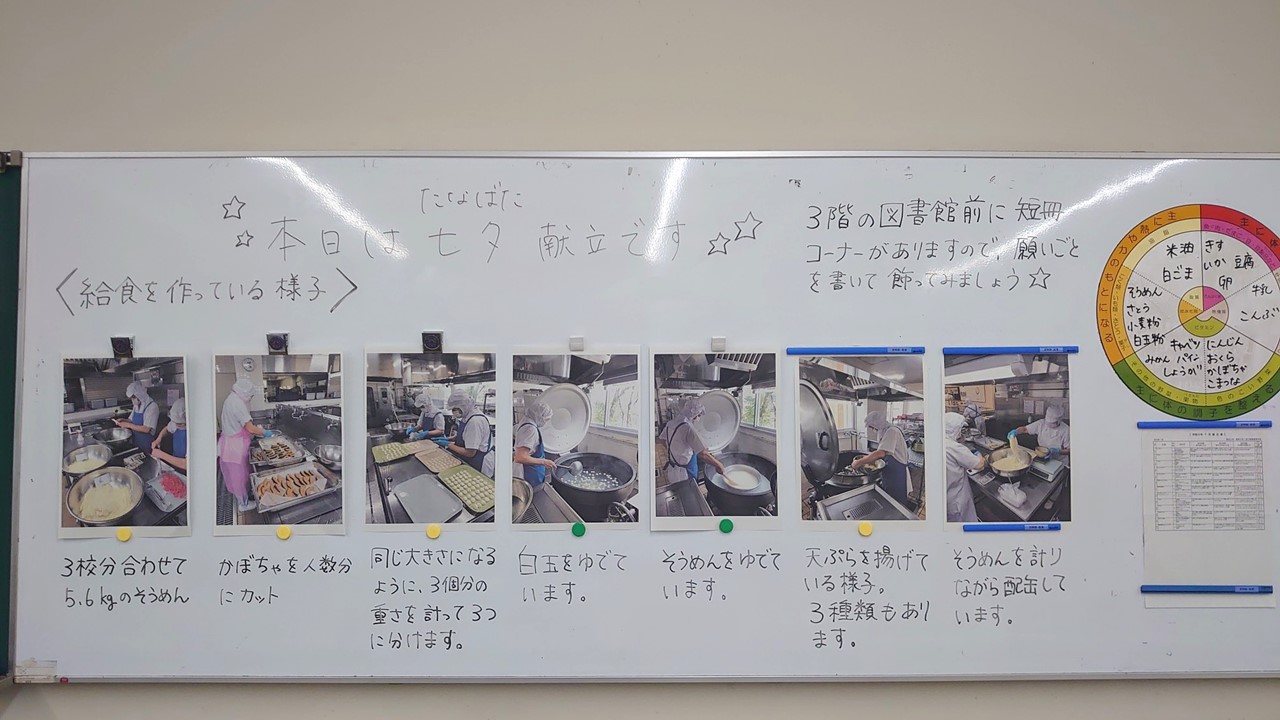 たなばた
☆ 本日は 七夕 献立です ☆
〈給食を作っている 様子〉
3階の図書館前に 短冊
コーナーがありますので、願いごと
を書いて 飾ってみましょう☆
3校分合わせて
5.6kgのそうめん
かぼちゃを人数分
にカット
同じ大きさになる
ように、3個分の
重さを計って3つ
に分けます。
白玉をゆでて
います。
そうめんをゆでて
います。
天ぷらを揚げて
いる様子。
3種類もあり
ます。
そうめんを計り
ながら配缶して
います。
米油
白ごま
きす
いか 豆腐
卵
牛乳
こんぶ
そうめん
さとう
小麦粉
白玉粉
キャベツ
みかん パイン
しょうが
にんじん
おくら
かぼちゃ
こまつな